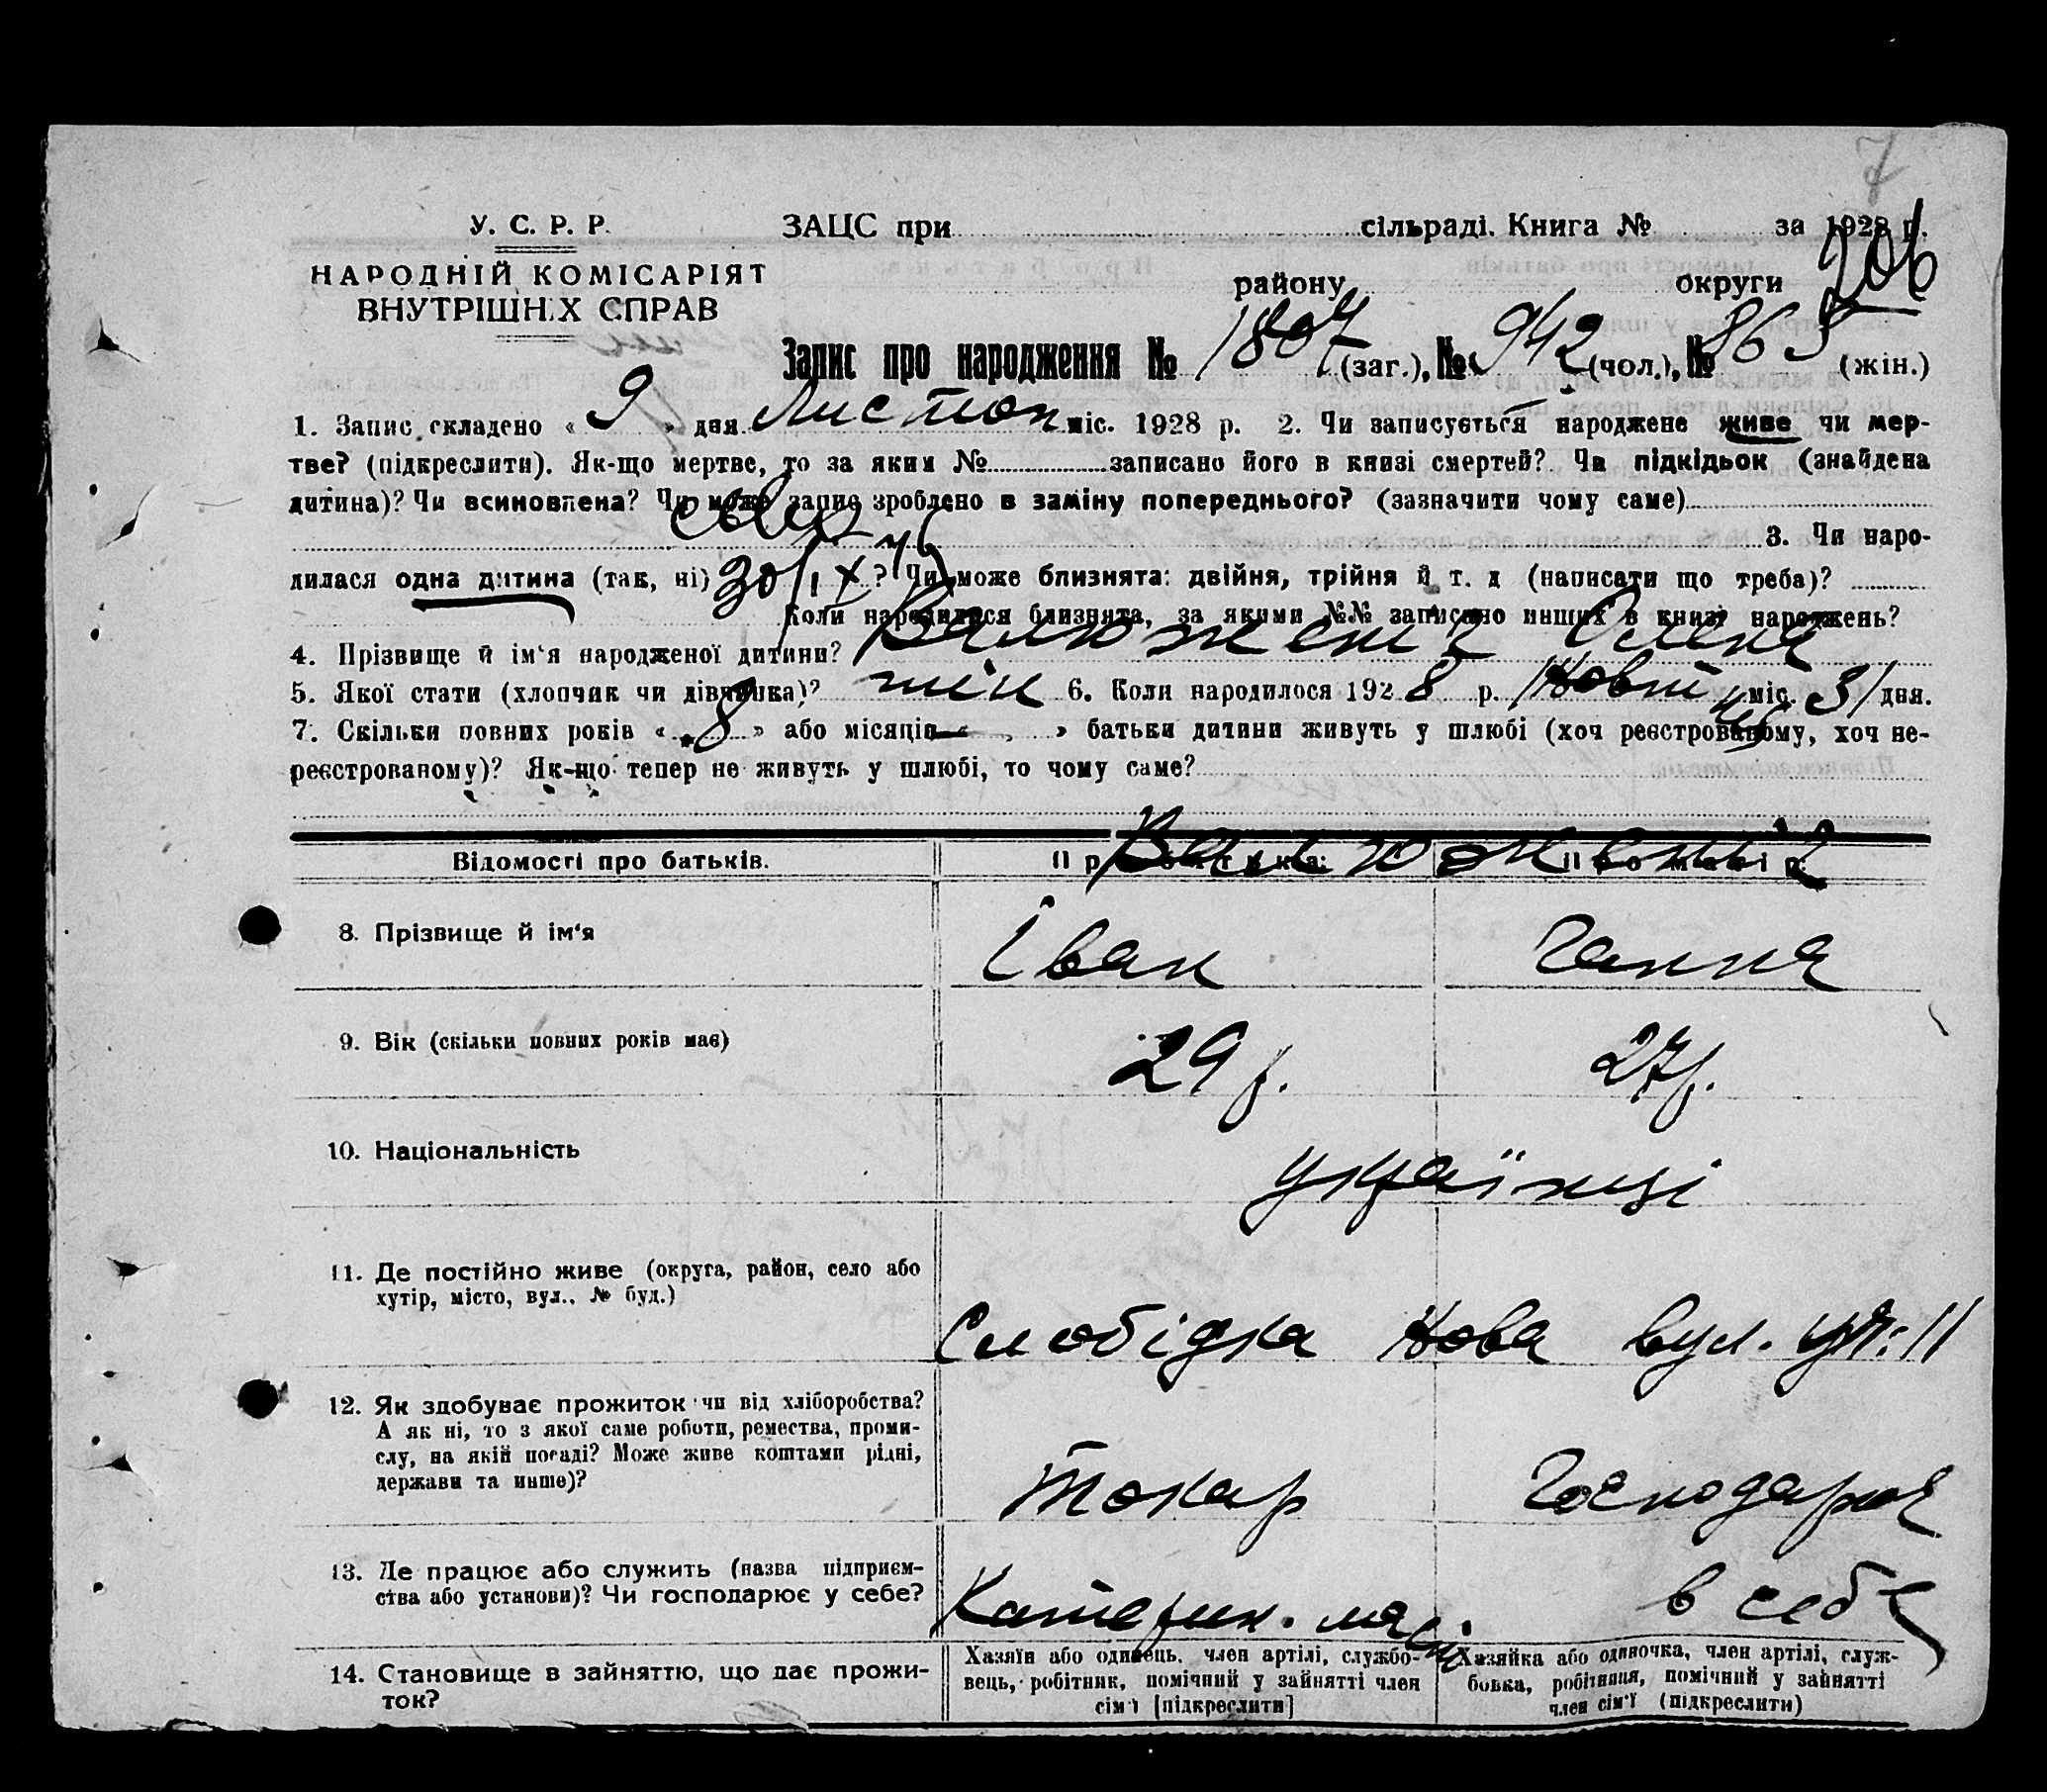 7
У. С. Р. Р.
ЗАЦС при сільраді. Книга № за 1928 р.
206
НАРОДНІЙ КОМІСАРІЯТ
ВНУТРІШНІХ СПРАВ
району округи
Запис про народження № 1807 (заг.), № 942 (чол.), № 865 (жін.)
1. Запис складено « 9 » дня Листоп міс. 1928 р. 2. Чи записується народжене живе чи мер-
тве? (підкреслити). Як-що мертве, то за яким № записано його в книзі смертей? Чи підкідьок (знайдена
дитина)? Чи всиновлена? Чи може запис зроблено в заміну попереднього? (зазначити чому саме)
3. Чи наро-
дилася одна дитина (так, ні) 30/IX 46 ? Чи може близнята: двійня, трійня й т. д (написати що треба)?
Коли народилися близнята, за якими №№ записано инших в книзі народжень?
4. Прізвище й ім'я народженої дитини? Валюженіч Олена
5. Якої стати (хлопчик чи дівчинка)? жін 6. Коли народилося 1928 р. Жовт міс. 31 дня.
7. Скільки повних років « 8 » або місяців « » батьки дитини живуть у шлюбі (хоч реєстрованому, хоч не-
реєстрованому)? Як-що тепер не живуть у шлюбі, то чому саме?
Відомості про батьків. Про батька: Про матір:
Валюженіч
8. Прізвище й ім'я Іван Ганна
9. Вік (скільки повних років має) 29 р. 27 р.
10. Національність українці
11. Де постійно живе (округа, район, село або
хутір, місто, вул., № буд.)
Слобідка Нова вул. 11
12. Як здобуває прожиток чи від хліборобства?
А як ні, то з якої саме роботи, ремества, проми-
слу, на якій посаді? Може живе коштами рідні,
держави та инше)?
Токар Господарює
13. Де працює або служить (назва підприєм-
ства або установи)? Чи господарює у себе?
Катерин. в себе
14. Становище в зайняттю, що дає прожи-
ток?
Хазяїн або одинець, член артілі, службо-
вець, робітник, помічний у зайнятті член
сім'ї [підкреслити]
Хазяйка або одиночка, член артілі, служ-
бовка, робітниця, помічний у зайнятті
член сім'ї (підкреслити)